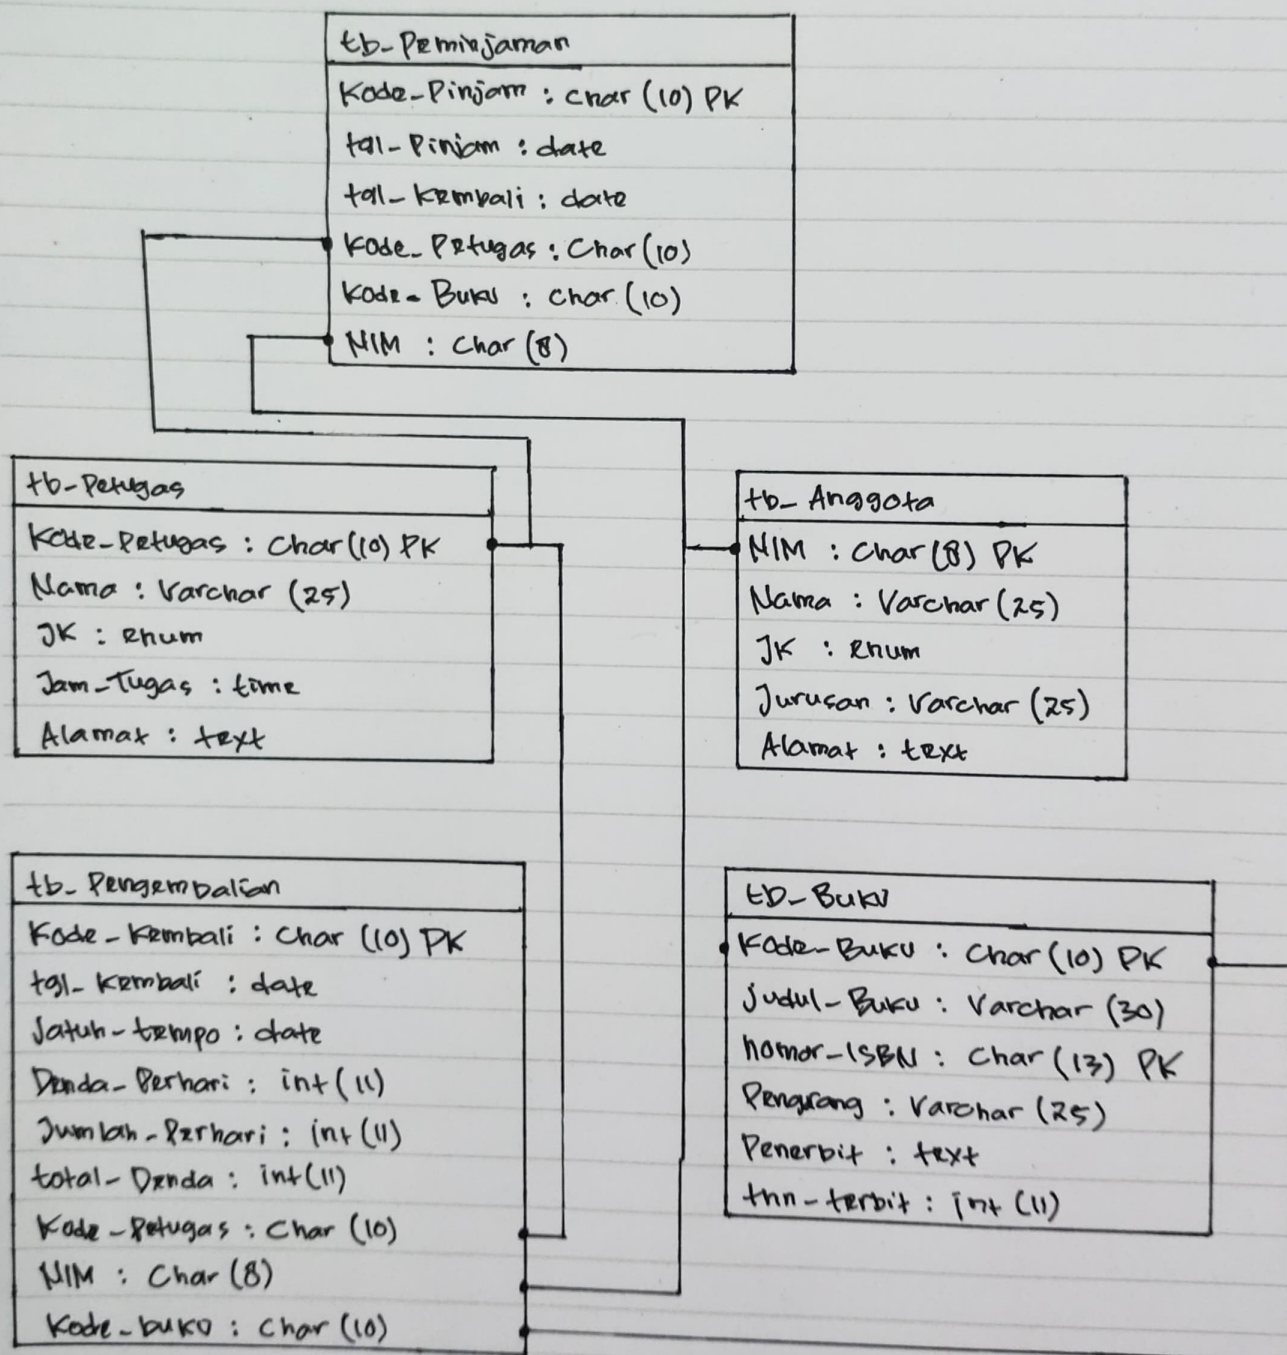 tb_Peminjaman
Kode_Pinjam : char (10) PK
tgl_Pinjam : date
tgl_kembali : date
Kode_Petugas : Char (10)
Kode_Buku : char (10)
NIM : Char (8)
tb_Petugas
Kode_Petugas : Char (10) PK
Nama : Varchar (25)
JK : enum
Jam_Tugas : time
Alamat : text
tb_Anggota
NIM : Char (8) PK
Nama : Varchar (25)
JK : enum
Jurusan : Varchar (25)
Alamat : text
tb_Pengembalian
Kode_Kembali : Char (10) PK
tgl_kembali : date
Jatuh_tempo : date
Denda_Perhari : int (11)
Jumlah_Perhari : int (11)
total_Denda : int (11)
Kode_Petugas : Char (10)
NIM : Char (8)
Kode_buku : Char (10)
tb_Buku
Kode_Buku : Char (10) PK
judul_Buku : Varchar (30)
nomor_ISBN : Char (13) PK
Pengrang : Varchar (25)
Penerbit : text
thn_terbit : int (11)